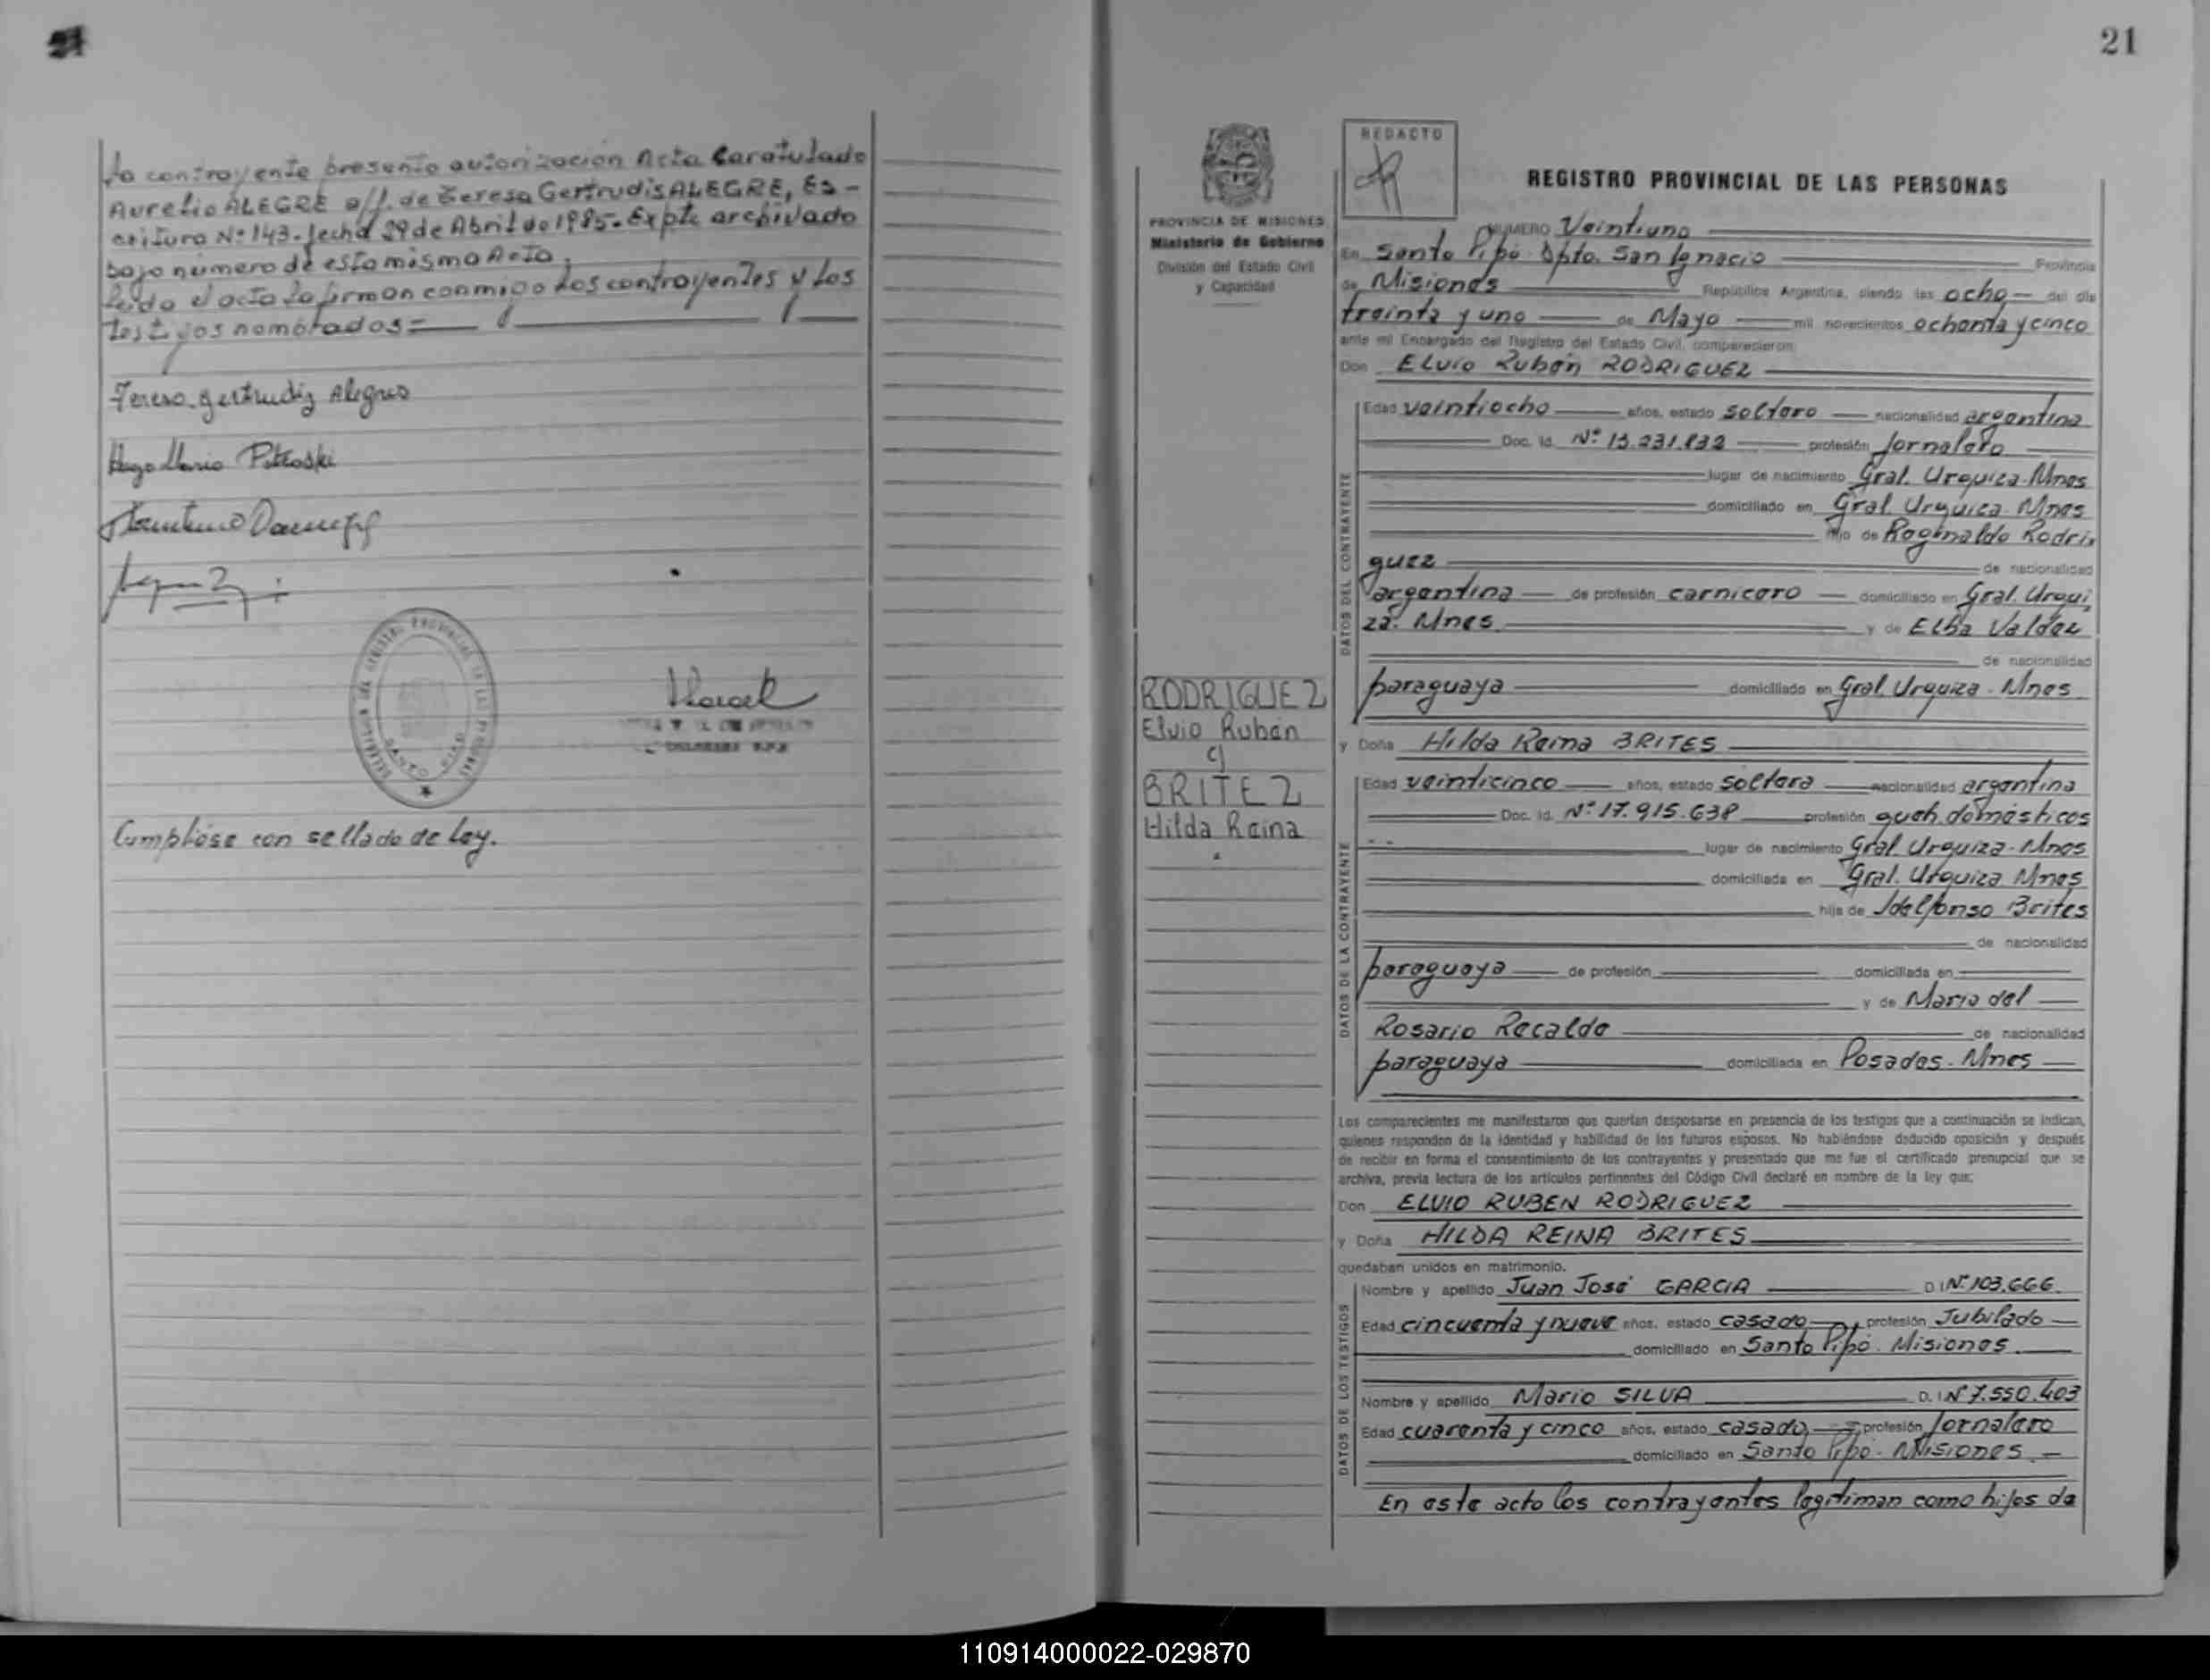 La contrayente presentó autorización Acta Caratulado
Aurelio ALEGRE a/f. de Teresa Gertrudis ALEGRE, Es-
critura Nº 143. fecha 29 de Abril de 1985. Expte archivado
bajo número de esta misma Acta.
Leido el acta la firman conmigo los contrayentes y los
testigos nombrados=
Teresa Gertrudiz Alegre
Hugo Mario
Cumplióse con sellado de Ley.
21
PROVINCIA DE MISIONES
Ministerio de Gobierno
División del Estado Civil
y Capacidad
RODRIGUEZ
Elvio Rubén
c/
BRITEZ
Hilda Reina
REDACTO
REGISTRO PROVINCIAL DE LAS PERSONAS
NUMERO Veintiuno
En Santo Pipó Dpto. San Ignacio Provincia
de Misiones República Argentina, siendo las ocho del día
treinta y uno de Mayo mil novecientos ochenta y cinco
ante mi Encargado del Registro del Estado Civil, comparecieron
Don ELvio Rubén RODRIGUEZ
DATOS DEL CONTRAYENTE
Edad veintiocho años, estado soltero nacionalidad argentina
Doc. Id. Nº 13.231.832 profesión Jornalero
lugar de nacimiento Gral. Urquiza-Mnes
domiciliado en Gral. Urquiza-Mnes
hijo de Reginaldo Rodri,
guez de nacionalidad
argentina de profesión carnicero domiciliado en Gral. Urqui,
za. Mnes. y de Elba Valdez
de nacionalidad
paraguaya domiciliado en Gral. Urquiza-Mnes
y Doña Hilda Reina BRITES
DATOS DE LA CONTRAYENTE
Edad veinticinco años, estado soltera nacionalidad argentina
Doc. Id. Nº 17.915.638 profesión queh. domésticos
lugar de nacimiento Gral. Urquiza-Mnes
domiciliada en Gral. Urquiza Mnes
hija de Idelfonso Brites
de nacionalidad
paraguaya de profesión domiciliada en
y de Maria del
Rosario Recalde de nacionalidad
paraguaya domiciliada en Posadas-Mnes
Los comparecientes me manifestaron que querían desposarse en presencia de los testigos que a continuación se indican,
quienes responden de la identidad y habilidad de los futuros esposos. No habiéndose deducido oposición y después
de recibir en forma el consentimiento de los contrayentes y presentado que me fue el certificado prenupcial que se
archiva, previa lectura de los artículos pertinentes del Código Civil declaré en nombre de la ley que:
Don ELVIO RUBEN RODRIGUEZ
y Doña HILDA REINA BRITES
quedaban unidos en matrimonio.
DATOS DE LOS TESTIGOS
Nombre y apellido Juan José GARCIA D.I Nº 103.666.
Edad cincuenta y nueve años, estado casado, profesión Jubilado
domiciliado en Santo Pipó. Misiones.
Nombre y apellido Mario SILVA D.I Nº 7.550.403
Edad cuarenta y cinco años, estado casado, profesión Jornalero
domiciliado en Santo Pipó-Misiones.
En este acto los contrayentes legitiman como hijos de
110914000022-029870